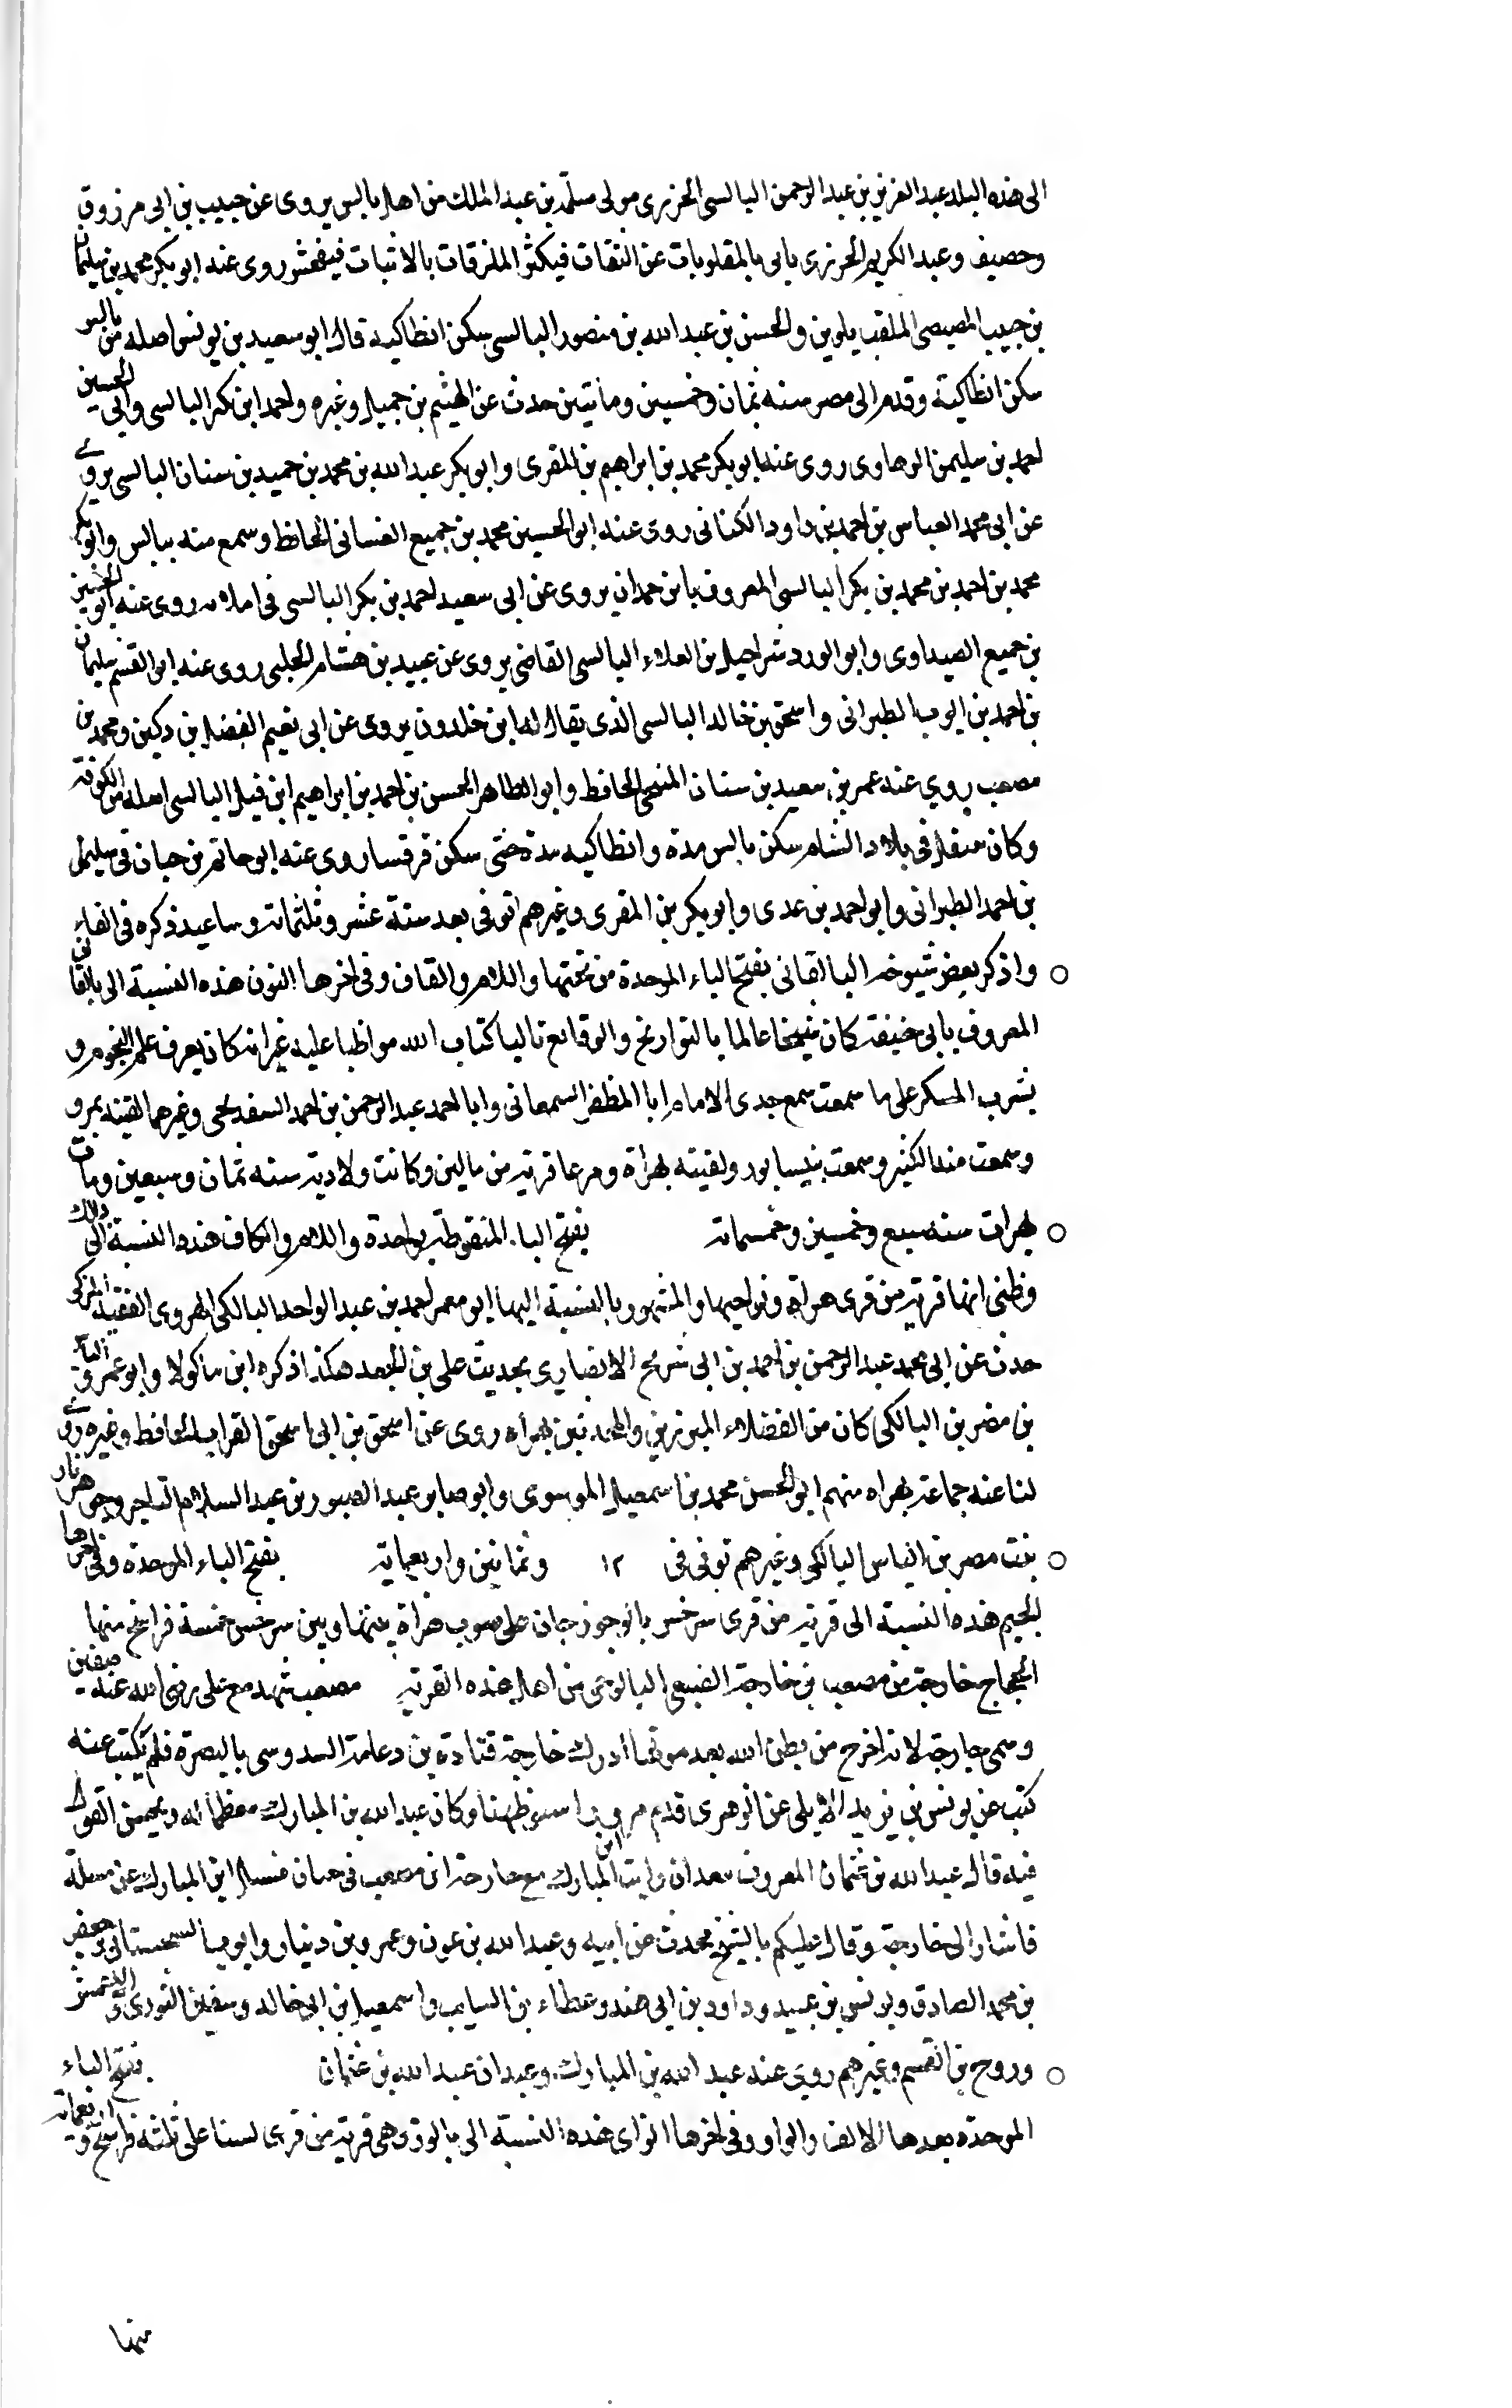 الى هذه البلد عبد العزيز بن عبد الرحمن البالسى الجزرى مولى مسلمة بن عبد الملك من اهل بالس يروى عن حبيب بن ابى مرزوق
وحصيف وعبد الكريم الجزرى ياتى بالمقلوبات عن الثقات فيكثر الملزقات بالاثبات فيفحش روى عنه ابو بكر محمد بن سليمان
بن حبيب المصيصى الملقب بلوين والحسن بن عبد الله بن منصور البالسى سكن انطاكية قال ابو سعيد بن يونس اصله من بالس
سكن انطاكية وقدم الى مصر سنه ثمان وخمسين ومائتين حدث عن الهيثم بن جميل وغيره واحمد ابن بكر البالسى وابى الحسين
احمد بن سليمن الرهاوى روى عنه ابو بكر محمد بن ابراهيم بن المقرى وابو بكر عبد الله بن محمد بن حميد بن سنان البالسى يروى
عن ابى محمد العباس بن احمد بن داود الكنانى روى عنه ابو الحسين محمد بن جميع الغسانى الحافظ وسمع منه ببالس وابو بكر
محمد بن احمد بن محمد بن بكر البالسى المعروف بابن حمدان يروى عن ابى سعيد احمد بن بكر البالسى فى املائه روى عنه ابو الحسين
بن جميع الصيداوى وابو الورد شراحيل بن العلاء البالسى القاضى يروى عن عبيد بن هشام الحلبى روى عنه ابو القسم سليمان
بن احمد بن ايوب الطبرانى واسحق بن خالد البالسى الذى يقال له ابن خلدون يروى عن ابى نعيم الفضل بن دكين ومحمد بن
مصعب روي عنه عمر بن سعيد بن سنان المنبجى الحافظ وابو الطاهر الحسن بن احمد بن ابراهيم ابن فيل البالسى اصله من الكوفة
وكان متنقلا فى بلاد الشام سكن بالس مدة وانطاكيه مدة حتى سكن قرقسا روى عنه ابو حاتم بن حبان فى سليمان
بن احمد الطبرانى وابو احمد بن عدى وابو بكر بن المقرى وغيرهم اتوفى بعد سنة عشر وثلثمائه وساعيد ذكره فى الفاء
○ واذكر بعض شيوخه البالقانى بفتح الباء الموحدة من تحتها واللام والقاف وفى اخرها النون هذه النسبة الى بالقان
المعروف بابى حنيفة كان شيخا عالما بالتواريخ والوقائع تاليا كتاب الله مواظبا عليه غير انه كان يعرف علم النجوم و
يشرب المسكر على ما سمعت سمع جدى الامام ابا المظفر السمعانى وابا احمد عبد الرحمن بن احمد وغيرهما لقيته بمرو
وسمعت منه الكثير وسمعت بنيسابور ولقيته بهراة ومرعا قرية من مالين وكانت ولادته سنه ثمان وسبعين ومات
○ بهرات سنه سبع وخمسين وخمسمائه بفتح الباء المنقوطة بواحدة واللام والكاف هذه النسبة الى ذلك
وظنى انها قرية من قرى هراة ونواحيها والمشهور بالنسبة اليها ابو معمر احمد بن عبد الواحد البالكى الهروى الفقيه المزكى
حدث عن ابى محمد عبد الرحمن بن احمد بن ابى شريح الانصارى بحديث على بن الجعد هكذا ذكره ابن ماكولا وابو عمرو الياس
بن مضر بن البالكى كان من الفضلاء المبرزين والمحدثين بهراه روى عن اسحق بن ابى اسحق القراب الحافظ وغيره روى
لنا عنه جماعة بهراه منهم ابو الحسن محمد بن اسمعيل الموسوى وابو صابر عبد الصبور بن عبد السلام التاجر وجوهر ناز
○ بنت مضر بن الياس البالكى وغيرهم توفى فى ١٢ وثمانين واربعمائة بفتح الباء الموحدة وفى اخرها
الجيم هذه النسبة الى قرية من قرى سرخس بالوجوزجان على صوب هراة بينها وبين سرخس خمسة فراسخ منها
الحجاج خارجة بن مصعب بن خارجة الضبعى البالوجى من اهل هذه القرية مصعب شهد مع على رضى الله عنه صفين
وسمى خارجة لانه اخرج من بطن امه بعد موتها ادرك خارجة قتادة بن دعامة السدوسى بالبصرة فلم يكتب عنه
كتب عن يونس بن يزيد الايلى عن الزهرى قدم مرو استوطنها وكان عبد الله بن المبارك معظما له ويحسن القول
فيه قال عبد الله بن عثمان المعروف بعبدان رايت ابن المبارك مع خارجة ابن مصعب فى فسال ابن المبارك عن مسلة
فاشار الى خارجة وقال عليكم بالشيخ يحدث عن ابيه وعبد الله بن عون وعمرو بن دينار وايوب السختيانى وجعفر
بن محمد الصادق ويونس بن عبيد وداود بن ابى هند وعطاء بن السايب واسمعيل بن ابى خالد وسفين الثورى والاعمش
○ وروح بن القسم وغيرهم روى عنه عبد الله بن المبارك وعبدان عبد الله بن عثمان بفتح الباء
الموحدة بعدها الالف والواو وفى اخرها الزاى هذه النسبة الى بالوز وهى قرية من قرى نسا على ثلثه فراسخ و اربعمائة
منها